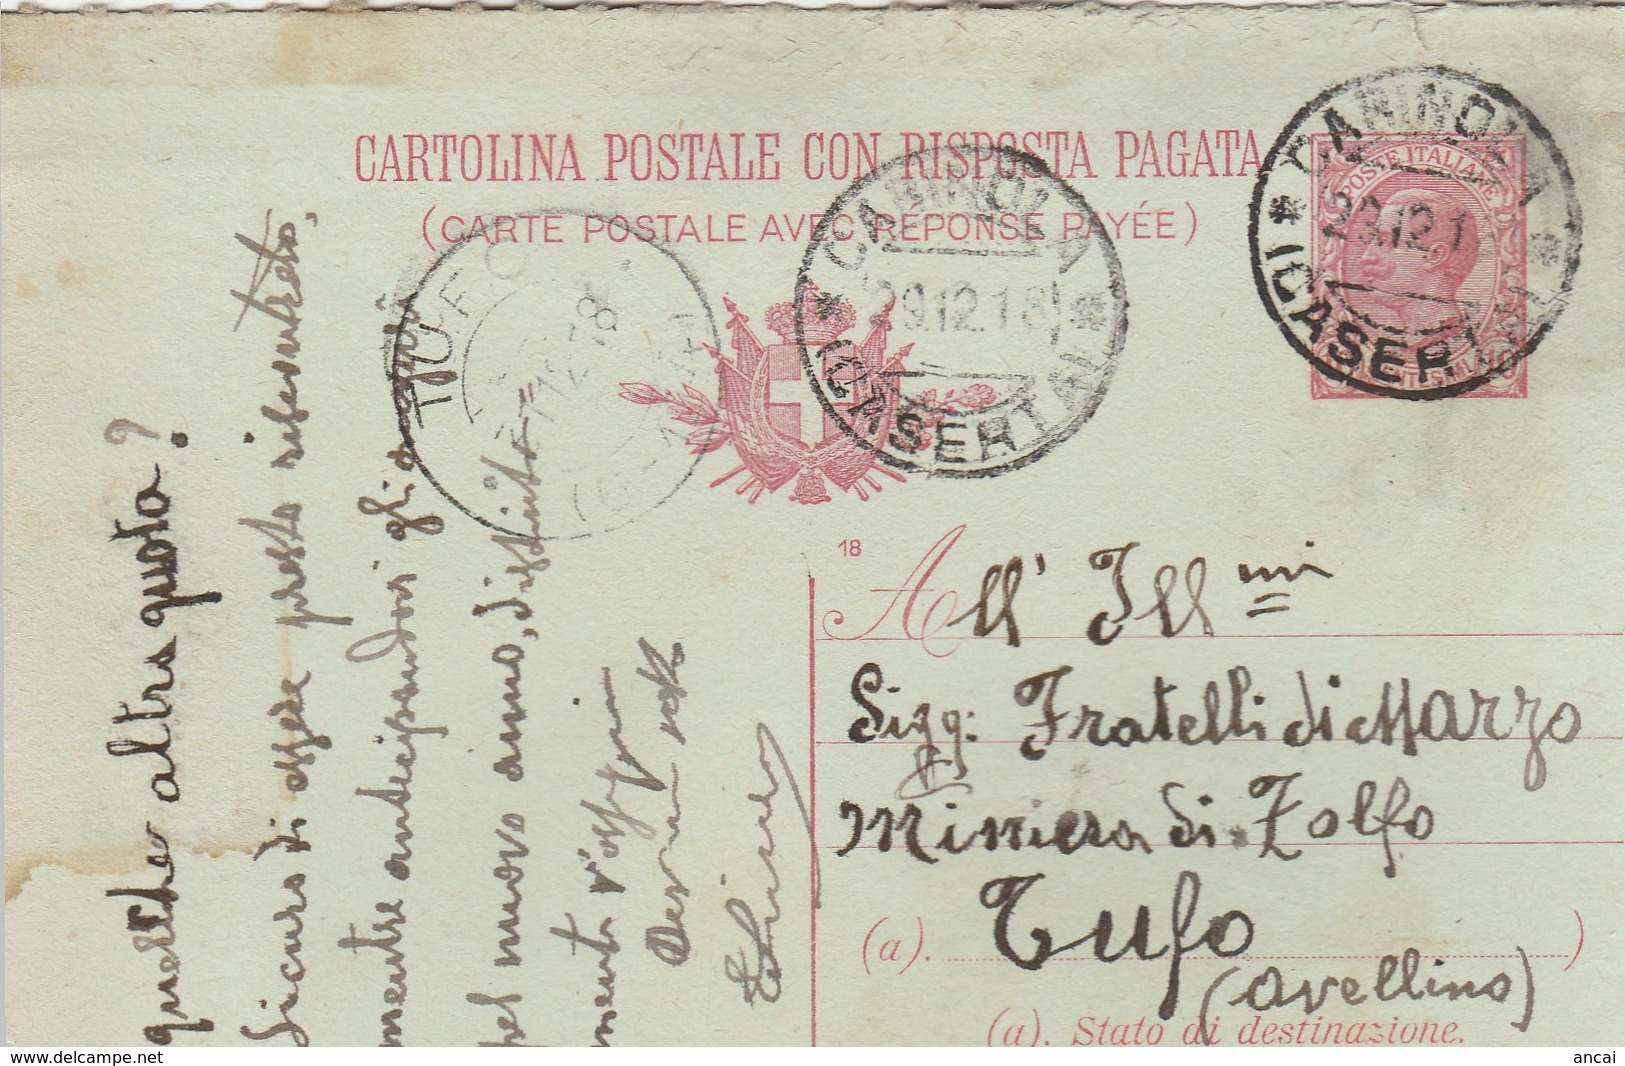 CARTOLINA POSTALE CON RISPOSTA PAGATA
(CARTE POSTALE AVEC RÉPONSE PAYÉE)
* CARINOLA *
(CASERTA)
29.12.1
POSTE ITALIANE
* CARINOLA *
29.12.18
(CASERTA)
TUFO
12 18
18
All' Ill mi
Sigg: Fratelli di Marzo
Miniera di Zolfo
(a). Tufo
(Avellino)
(a). Stato di destinazione.
qualche altra quota?
Sicuro di essere presto riscontrato,
mentre anticipandovi gli auguri
pel nuovo anno, distinta
mente v'ossequio
delcampe.net
ancai